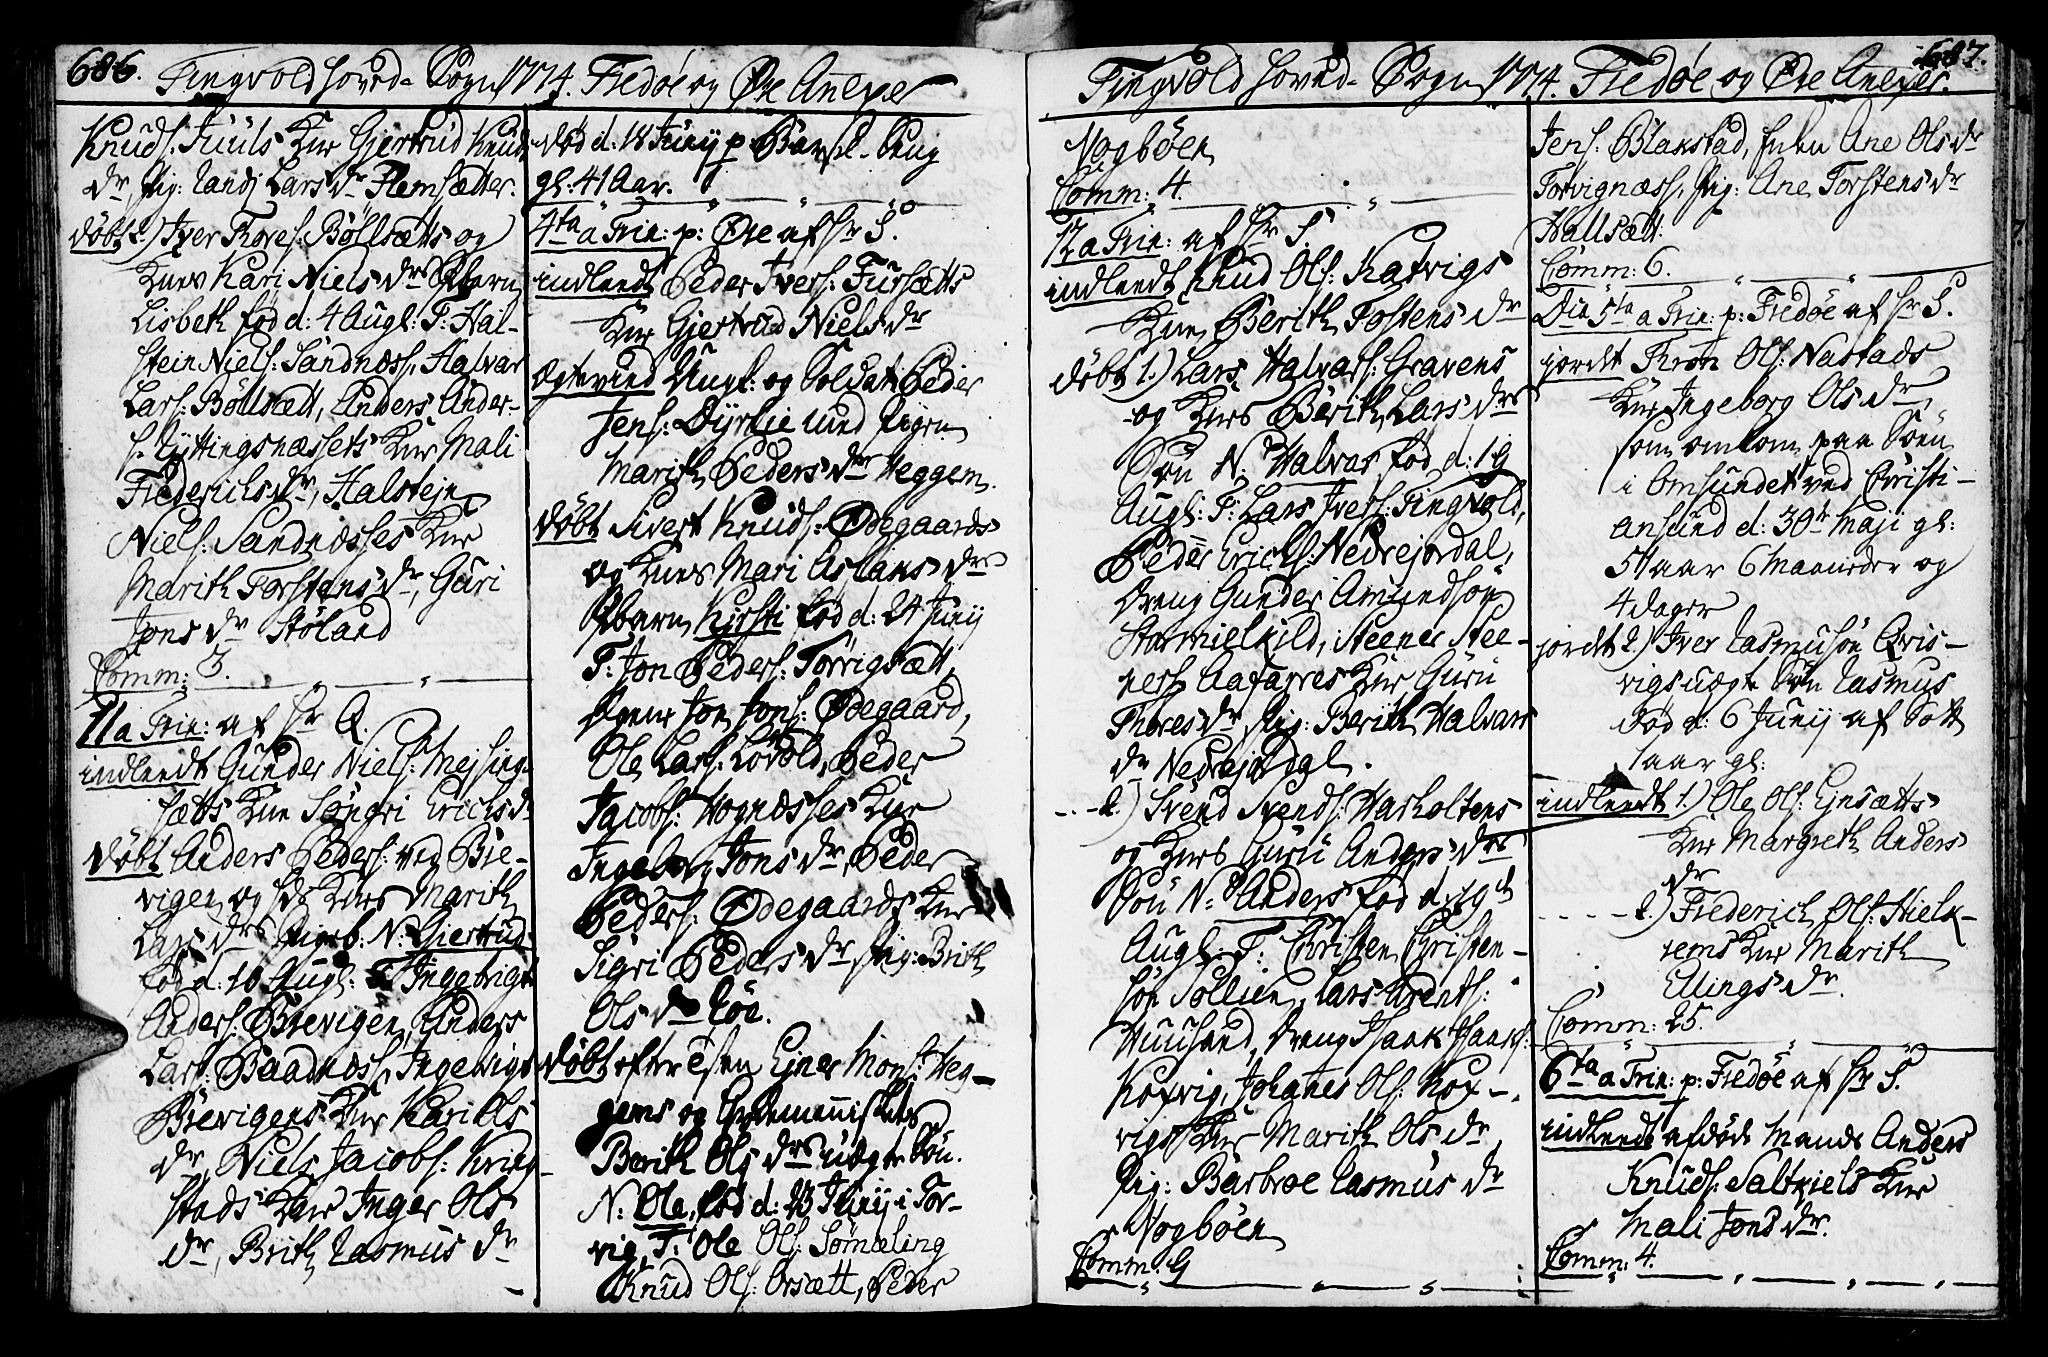 686. Tingvold hoved-Sogn 1774. Fredøe og Øre Anexer
Knuds: Juuls Kne Gjertrud Knuds
dr pig: Randj Lars dr Flemsætter.
døbt 2.) Iver Tores: Bøllsætts og
Knes Kari Niels drs Pbarn
Lisbeth fød d: 4 Augl: T: Hal-
stein Niels: Sandnæss, Halvar
Lars: Bøllsætt, Anders Ander-
s: Gyttingsnæssets Kne Mali
Friderichs dr, Halstejn
Niels: Sandnæsses Kne
Marith Torstens dr, Guri
Jons dr Støland
Comm: 3.
11 a Trin: af hr A.
indleedt Gunder Niels: Mejsing-
sætts Kne Søngri Erichs dr
døbt Anders Peders: ved Bre-
vigen og hds Knes Marith
Lars drs Pigeb: N: Gjertrud
fød d: 16 Augl: T: Ingebrigt
Anders: Brevigen, Anders
Lars: Baadnæss, Ingebrigt
Brevigens Kne Kari Ols
dr, Niels Jacobs: Kring-
stads Kne Inger Ols
dr, Brith Rasmus dr
død d: 18 Junij p Barsel-Seng
gl: 41 Aar.
4ta a Trin: p: Øre af hr S.
indleedt Peder Ivers: Fursætts
Kne Gjertrud Niels dr
Ægteviid Ungk: og Soldat Peder
Jens: Dyrlie med Pigen
Marith Peders dr Heggem.
døbt Sivert Knuds: Ødegaards
og Knes Mari Aslaks drs
Pbarn Kirsti fød d: 24 Junij
T: Jon Peders: Torrigsætt,
Dreng Jon Jons: Ødegaard,
Ole Lars: Løvold, Peder
Jacobs: Hognæsses Kne
Ingeborg Jons dr, Peder
Peders: Ødegaards Kne
Sigri Peders dr, Pig: Brith
Ols dr Løe.
døbt efter Esen Ejner Mons: Heg-
gems og Qvindemenniskets
Berith Ols drs uægte Søn.
N: Ole, fød d: 23 Junij i Tor-
vig, T: Ole Ols: Sømæling
Knud Ols: Orsætt, Peder
687.
Tingvold hoved-Sogn 1774. Fredøe og Øre Anexer.
Vogbøen
Comm: 4.
12 a Trin: af hr S.
indleedt Knud Ols: Katvigs
Kne Berith Tostens dr
døbt 1.) Lars Halvars: Gravens
og Knes Berith Lars drs
Søn N: Halvar fød d: 19
Augl: T: Lars Ivers: Tingvold,
Peder Erichs: Nedrejordal,
Dreng Gunder Amundsøn
Stormelkild, Steener Stee-
ners: Aafarres Kne Guru
Thores dr Pig: Berith Halvars
dr Nedrejordal.
- - - 2.) Svend Svends: Harholtens
og Knes Guru Anders drs
Søn N: Anders fød d: 19de
Augl: T: Christen Christen-
søn Sollien, Lars Arents:
Huusand, Dreng Isaak Isaaks:
Koxvig, Johanes Ols: Kox-
vigs Kne Marith Ols dr
Pig: Barbroe Rasmus dr
Vogbøen
Comm: 9
Jens: Blakstad, Enken Ane Ols dr
Torvignæss, Pig: Ane Torstens dr
Hallsætt.
Comm: 6.
Die 5ta a Trin: p: Fredøe af hr S.
jordet Tron Ols: Nastads
Kne Ingeborg Ols dr
som omkom paa Søen
i Omsundet ved Christi-
ansund d: 30te Maji gl:
51 aar 6 Maaneder og
4 dager
jordet 2.) Iver Rasmusøn Qvis-
vigs uægte Søn Rasmus
død d: 6 Junij af Sott
1 aar gl:
indleedt 1.) Ole Ols: Ejnsætts
Kne Margreth Anders
dr
- - - - - 2.) Frederich Ols: Stelk-
nems Kne Marith
Ellings dr.
Comm: 25.
6ta a Trin: p: Fredøe af hr S.
indleedt afdøde Mands Anders
Knuds: Saltkjels Kne
Mali Jons dr.
Comm: 4.